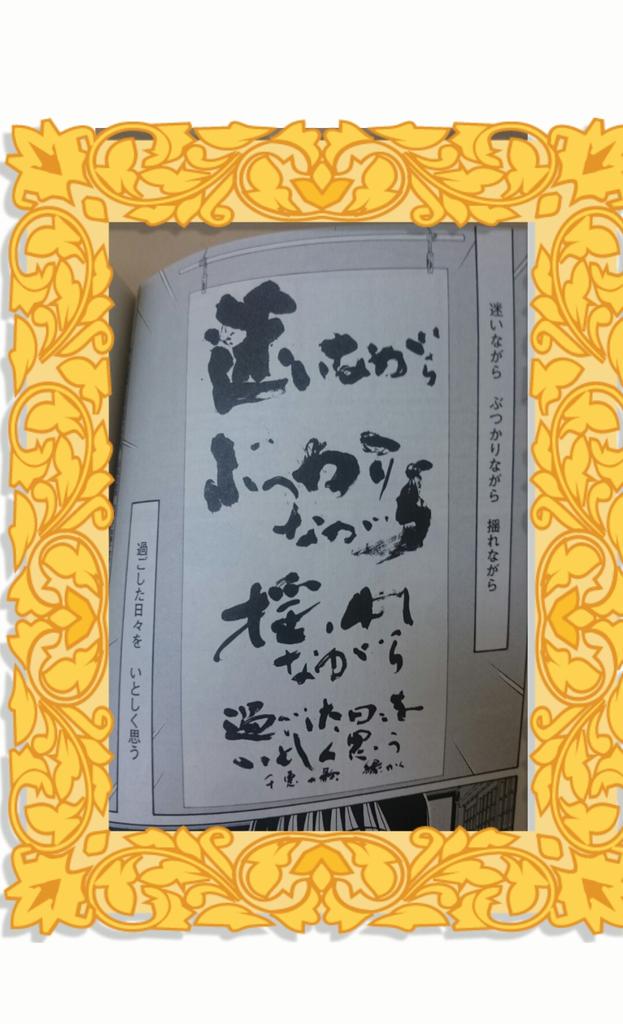 迷いながら ぶつかりながら 揺れながら
迷いながら
ぶつかり
ながら
揺れ
ながら
過ごした日々を
いとしく思う
千恵の歌
過ごした日々を いとしく思う